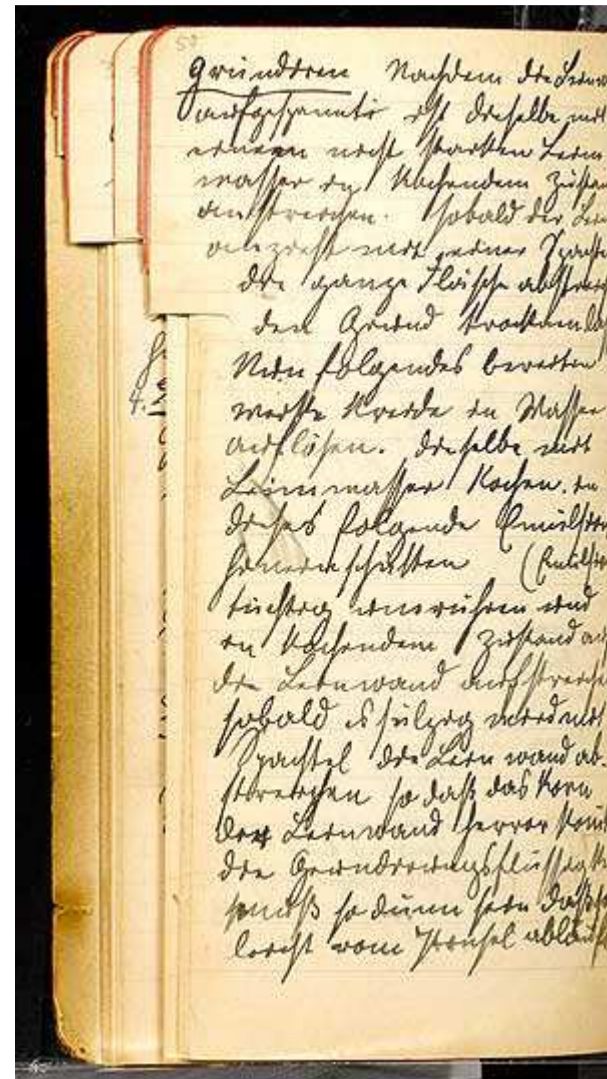 50
Grundieren Nachdem die Leinw
aufgespannt ist dieselbe mit
einem nicht starken Leim
wasser in kochendem Zustan
anstreichen. sobald der Lei
anzieht mit einer Spachte
die ganze Fläche abstreich
den Grund trocknen la
Nun folgendes bereiten
weiße Kreide in Wasser
auflösen. dieselbe mit
Leimwasser kochen. in
dieses folgende Emulsion
hineinschütten (Emulsio
tüchtig einrühren und
in kochendem Zustand auf
die Leinwand aufstreiche
sobald es sülzig wird mit
Spachtel die Leinwand ab-
streichen so daß das Korn
der Leinwand hervor kom
die Grundierungsflüssigk
muß so dünn sein daß s
leicht vom Pinsel abläuf
4.